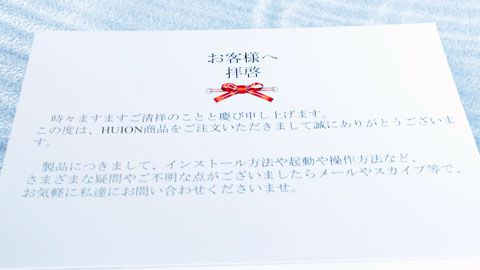 お客様へ
拝啓
時々ますますご清祥のことと慶び申し上げます。
この度は、HUION商品をご注文いただきまして誠にありがとうございま
す。
製品につきまして、インストール方法や起動や操作方法など、
さまざまな疑問やご不明な点がございましたらメールやスカイプ等で、
お気軽に私達にお問い合わせくださいませ。